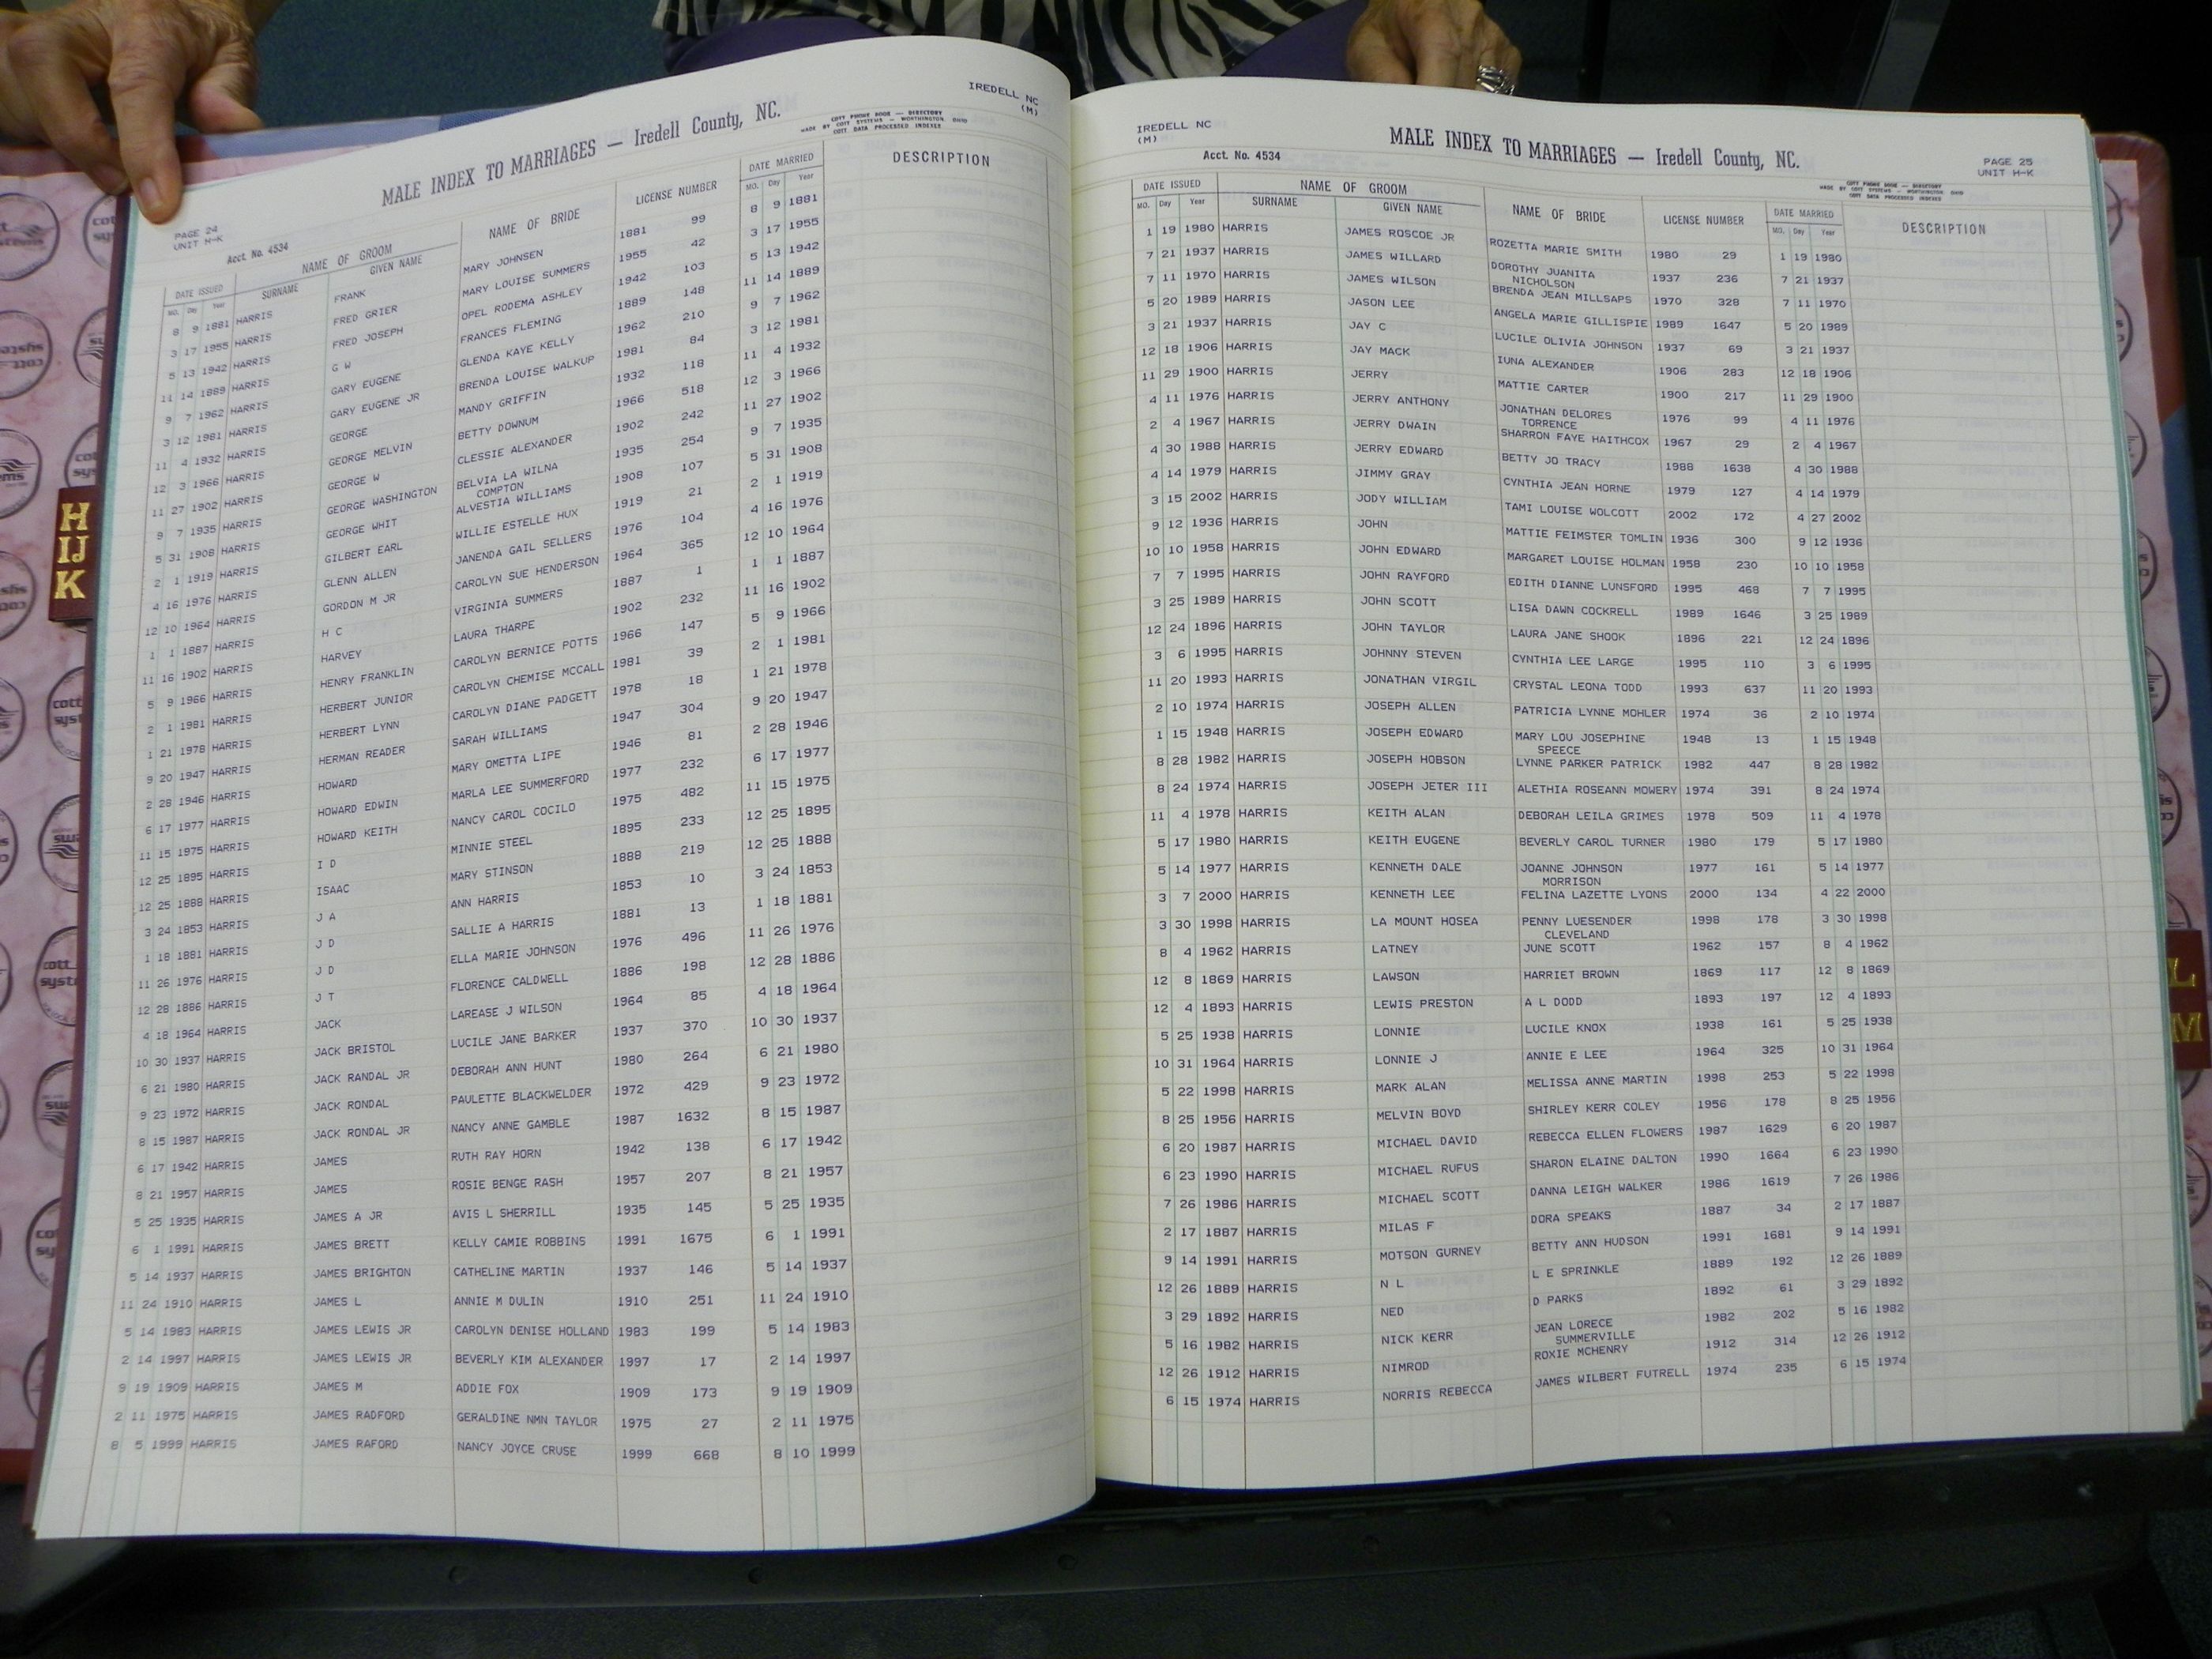 IREDELL NC
(M)
MALE INDEX TO MARRIAGES — Iredell County, NC.
COTT PHONE BOOK — DIRECTORY
MADE BY COTT SYSTEMS — WORTHINGTON, OHIO
COTT DATA PROCESSED INDEXES
PAGE 24
UNIT H-K
Acct. No. 4534
DATE ISSUED NAME OF GROOM NAME OF BRIDE LICENSE NUMBER DATE MARRIED DESCRIPTION
MO. Day Year SURNAME GIVEN NAME MO. Day Year
8 9 1881 HARRIS FRANK MARY JOHNSEN 1881 99 8 9 1881
3 17 1955 HARRIS FRED GRIER MARY LOUISE SUMMERS 1955 42 3 17 1955
5 13 1942 HARRIS FRED JOSEPH OPEL RODEMA ASHLEY 1942 103 5 13 1942
11 14 1889 HARRIS G W FRANCES FLEMING 1889 148 11 14 1889
9 7 1962 HARRIS GARY EUGENE GLENDA KAYE KELLY 1962 210 9 7 1962
3 12 1981 HARRIS GARY EUGENE JR BRENDA LOUISE WALKUP 1981 84 3 12 1981
11 4 1932 HARRIS GEORGE MANDY GRIFFIN 1932 118 11 4 1932
12 3 1966 HARRIS GEORGE MELVIN BETTY DOWNUM 1966 518 12 3 1966
11 27 1902 HARRIS GEORGE W CLESSIE ALEXANDER 1902 242 11 27 1902
9 7 1935 HARRIS GEORGE WASHINGTON BELVIA LA WILNA 1935 254 9 7 1935
COMPTON
5 31 1908 HARRIS GEORGE WHIT ALVESTIA WILLIAMS 1908 107 5 31 1908
2 1 1919 HARRIS GILBERT EARL WILLIE ESTELLE HUX 1919 21 2 1 1919
4 16 1976 HARRIS GLENN ALLEN JANENDA GAIL SELLERS 1976 104 4 16 1976
12 10 1964 HARRIS GORDON M JR CAROLYN SUE HENDERSON 1964 365 12 10 1964
1 1 1887 HARRIS H C VIRGINIA SUMMERS 1887 1 1 1 1887
11 16 1902 HARRIS HARVEY LAURA THARPE 1902 232 11 16 1902
5 9 1966 HARRIS HENRY FRANKLIN CAROLYN BERNICE POTTS 1966 147 5 9 1966
2 1 1981 HARRIS HERBERT JUNIOR CAROLYN CHEMISE MCCALL 1981 39 2 1 1981
1 21 1978 HARRIS HERBERT LYNN CAROLYN DIANE PADGETT 1978 18 1 21 1978
9 20 1947 HARRIS HERMAN READER SARAH WILLIAMS 1947 304 9 20 1947
2 28 1946 HARRIS HOWARD MARY OMETTA LIPE 1946 81 2 28 1946
6 17 1977 HARRIS HOWARD EDWIN MARLA LEE SUMMERFORD 1977 232 6 17 1977
11 15 1975 HARRIS HOWARD KEITH NANCY CAROL COCILO 1975 482 11 15 1975
12 25 1895 HARRIS I D MINNIE STEEL 1895 233 12 25 1895
12 25 1888 HARRIS ISAAC MARY STINSON 1888 219 12 25 1888
3 24 1853 HARRIS J A ANN HARRIS 1853 10 3 24 1853
1 18 1881 HARRIS J D SALLIE A HARRIS 1881 13 1 18 1881
11 26 1976 HARRIS J D ELLA MARIE JOHNSON 1976 496 11 26 1976
12 28 1886 HARRIS J T FLORENCE CALDWELL 1886 198 12 28 1886
4 18 1964 HARRIS JACK LAREASE J WILSON 1964 85 4 18 1964
10 30 1937 HARRIS JACK BRISTOL LUCILE JANE BARKER 1937 370 10 30 1937
6 21 1980 HARRIS JACK RANDAL JR DEBORAH ANN HUNT 1980 264 6 21 1980
9 23 1972 HARRIS JACK RONDAL PAULETTE BLACKWELDER 1972 429 9 23 1972
8 15 1987 HARRIS JACK RONDAL JR NANCY ANNE GAMBLE 1987 1632 8 15 1987
6 17 1942 HARRIS JAMES RUTH RAY HORN 1942 138 6 17 1942
8 21 1957 HARRIS JAMES ROSIE BENGE RASH 1957 207 8 21 1957
5 25 1935 HARRIS JAMES A JR AVIS L SHERRILL 1935 145 5 25 1935
6 1 1991 HARRIS JAMES BRETT KELLY CAMIE ROBBINS 1991 1675 6 1 1991
5 14 1937 HARRIS JAMES BRIGHTON CATHELINE MARTIN 1937 146 5 14 1937
11 24 1910 HARRIS JAMES L ANNIE M DULIN 1910 251 11 24 1910
5 14 1983 HARRIS JAMES LEWIS JR CAROLYN DENISE HOLLAND 1983 199 5 14 1983
2 14 1997 HARRIS JAMES LEWIS JR BEVERLY KIM ALEXANDER 1997 17 2 14 1997
9 19 1909 HARRIS JAMES M ADDIE FOX 1909 173 9 19 1909
2 11 1975 HARRIS JAMES RADFORD GERALDINE NMN TAYLOR 1975 27 2 11 1975
8 5 1999 HARRIS JAMES RAFORD NANCY JOYCE CRUSE 1999 668 8 10 1999
IREDELL NC
(M)
MALE INDEX TO MARRIAGES — Iredell County, NC.
Acct. No. 4534
PAGE 25
UNIT H-K
COTT PHONE BOOK — DIRECTORY
MADE BY COTT SYSTEMS — WORTHINGTON, OHIO
COTT DATA PROCESSED INDEXES
DATE ISSUED NAME OF GROOM NAME OF BRIDE LICENSE NUMBER DATE MARRIED DESCRIPTION
MO. Day Year SURNAME GIVEN NAME MO. Day Year
1 19 1980 HARRIS JAMES ROSCOE JR ROZETTA MARIE SMITH 1980 29 1 19 1980
7 21 1937 HARRIS JAMES WILLARD DOROTHY JUANITA 1937 236 7 21 1937
NICHOLSON
7 11 1970 HARRIS JAMES WILSON BRENDA JEAN MILLSAPS 1970 328 7 11 1970
5 20 1989 HARRIS JASON LEE ANGELA MARIE GILLISPIE 1989 1647 5 20 1989
3 21 1937 HARRIS JAY C LUCILE OLIVIA JOHNSON 1937 69 3 21 1937
12 18 1906 HARRIS JAY MACK IUNA ALEXANDER 1906 283 12 18 1906
11 29 1900 HARRIS JERRY MATTIE CARTER 1900 217 11 29 1900
4 11 1976 HARRIS JERRY ANTHONY JONATHAN DELORES 1976 99 4 11 1976
TORRENCE
2 4 1967 HARRIS JERRY DWAIN SHARRON FAYE HAITHCOX 1967 29 2 4 1967
4 30 1988 HARRIS JERRY EDWARD BETTY JO TRACY 1988 1638 4 30 1988
4 14 1979 HARRIS JIMMY GRAY CYNTHIA JEAN HORNE 1979 127 4 14 1979
3 15 2002 HARRIS JODY WILLIAM TAMI LOUISE WOLCOTT 2002 172 4 27 2002
9 12 1936 HARRIS JOHN MATTIE FEIMSTER TOMLIN 1936 300 9 12 1936
10 10 1958 HARRIS JOHN EDWARD MARGARET LOUISE HOLMAN 1958 230 10 10 1958
7 7 1995 HARRIS JOHN RAYFORD EDITH DIANNE LUNSFORD 1995 468 7 7 1995
3 25 1989 HARRIS JOHN SCOTT LISA DAWN COCKRELL 1989 1646 3 25 1989
12 24 1896 HARRIS JOHN TAYLOR LAURA JANE SHOOK 1896 221 12 24 1896
3 6 1995 HARRIS JOHNNY STEVEN CYNTHIA LEE LARGE 1995 110 3 6 1995
11 20 1993 HARRIS JONATHAN VIRGIL CRYSTAL LEONA TODD 1993 637 11 20 1993
2 10 1974 HARRIS JOSEPH ALLEN PATRICIA LYNNE MOHLER 1974 36 2 10 1974
1 15 1948 HARRIS JOSEPH EDWARD MARY LOU JOSEPHINE 1948 13 1 15 1948
SPEECE
8 28 1982 HARRIS JOSEPH HOBSON LYNNE PARKER PATRICK 1982 447 8 28 1982
8 24 1974 HARRIS JOSEPH JETER III ALETHIA ROSEANN MOWERY 1974 391 8 24 1974
11 4 1978 HARRIS KEITH ALAN DEBORAH LEILA GRIMES 1978 509 11 4 1978
5 17 1980 HARRIS KEITH EUGENE BEVERLY CAROL TURNER 1980 179 5 17 1980
5 14 1977 HARRIS KENNETH DALE JOANNE JOHNSON 1977 161 5 14 1977
MORRISON
3 7 2000 HARRIS KENNETH LEE FELINA LAZETTE LYONS 2000 134 4 22 2000
3 30 1998 HARRIS LA MOUNT HOSEA PENNY LUESENDER 1998 178 3 30 1998
CLEVELAND
8 4 1962 HARRIS LATNEY JUNE SCOTT 1962 157 8 4 1962
12 8 1869 HARRIS LAWSON HARRIET BROWN 1869 117 12 8 1869
12 4 1893 HARRIS LEWIS PRESTON A L DODD 1893 197 12 4 1893
5 25 1938 HARRIS LONNIE LUCILE KNOX 1938 161 5 25 1938
10 31 1964 HARRIS LONNIE J ANNIE E LEE 1964 325 10 31 1964
5 22 1998 HARRIS MARK ALAN MELISSA ANNE MARTIN 1998 253 5 22 1998
8 25 1956 HARRIS MELVIN BOYD SHIRLEY KERR COLEY 1956 178 8 25 1956
6 20 1987 HARRIS MICHAEL DAVID REBECCA ELLEN FLOWERS 1987 1629 6 20 1987
6 23 1990 HARRIS MICHAEL RUFUS SHARON ELAINE DALTON 1990 1664 6 23 1990
7 26 1986 HARRIS MICHAEL SCOTT DANNA LEIGH WALKER 1986 1619 7 26 1986
2 17 1887 HARRIS MILAS F DORA SPEAKS 1887 34 2 17 1887
9 14 1991 HARRIS MOTSON GURNEY BETTY ANN HUDSON 1991 1681 9 14 1991
12 26 1889 HARRIS N L L E SPRINKLE 1889 192 12 26 1889
3 29 1892 HARRIS NED D PARKS 1892 61 3 29 1892
5 16 1982 HARRIS NICK KERR JEAN LORECE 1982 202 5 16 1982
SUMMERVILLE
12 26 1912 HARRIS NIMROD ROXIE MCHENRY 1912 314 12 26 1912
6 15 1974 HARRIS NORRIS REBECCA JAMES WILBERT FUTRELL 1974 235 6 15 1974
H
IJ
K
L
M